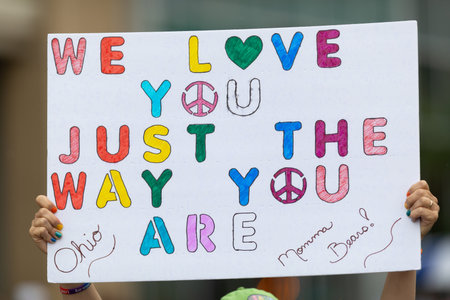 WE L♥VE
Y☮U
JUST THE
WAY Y☮U
ARE
Ohio
Momma Bears!